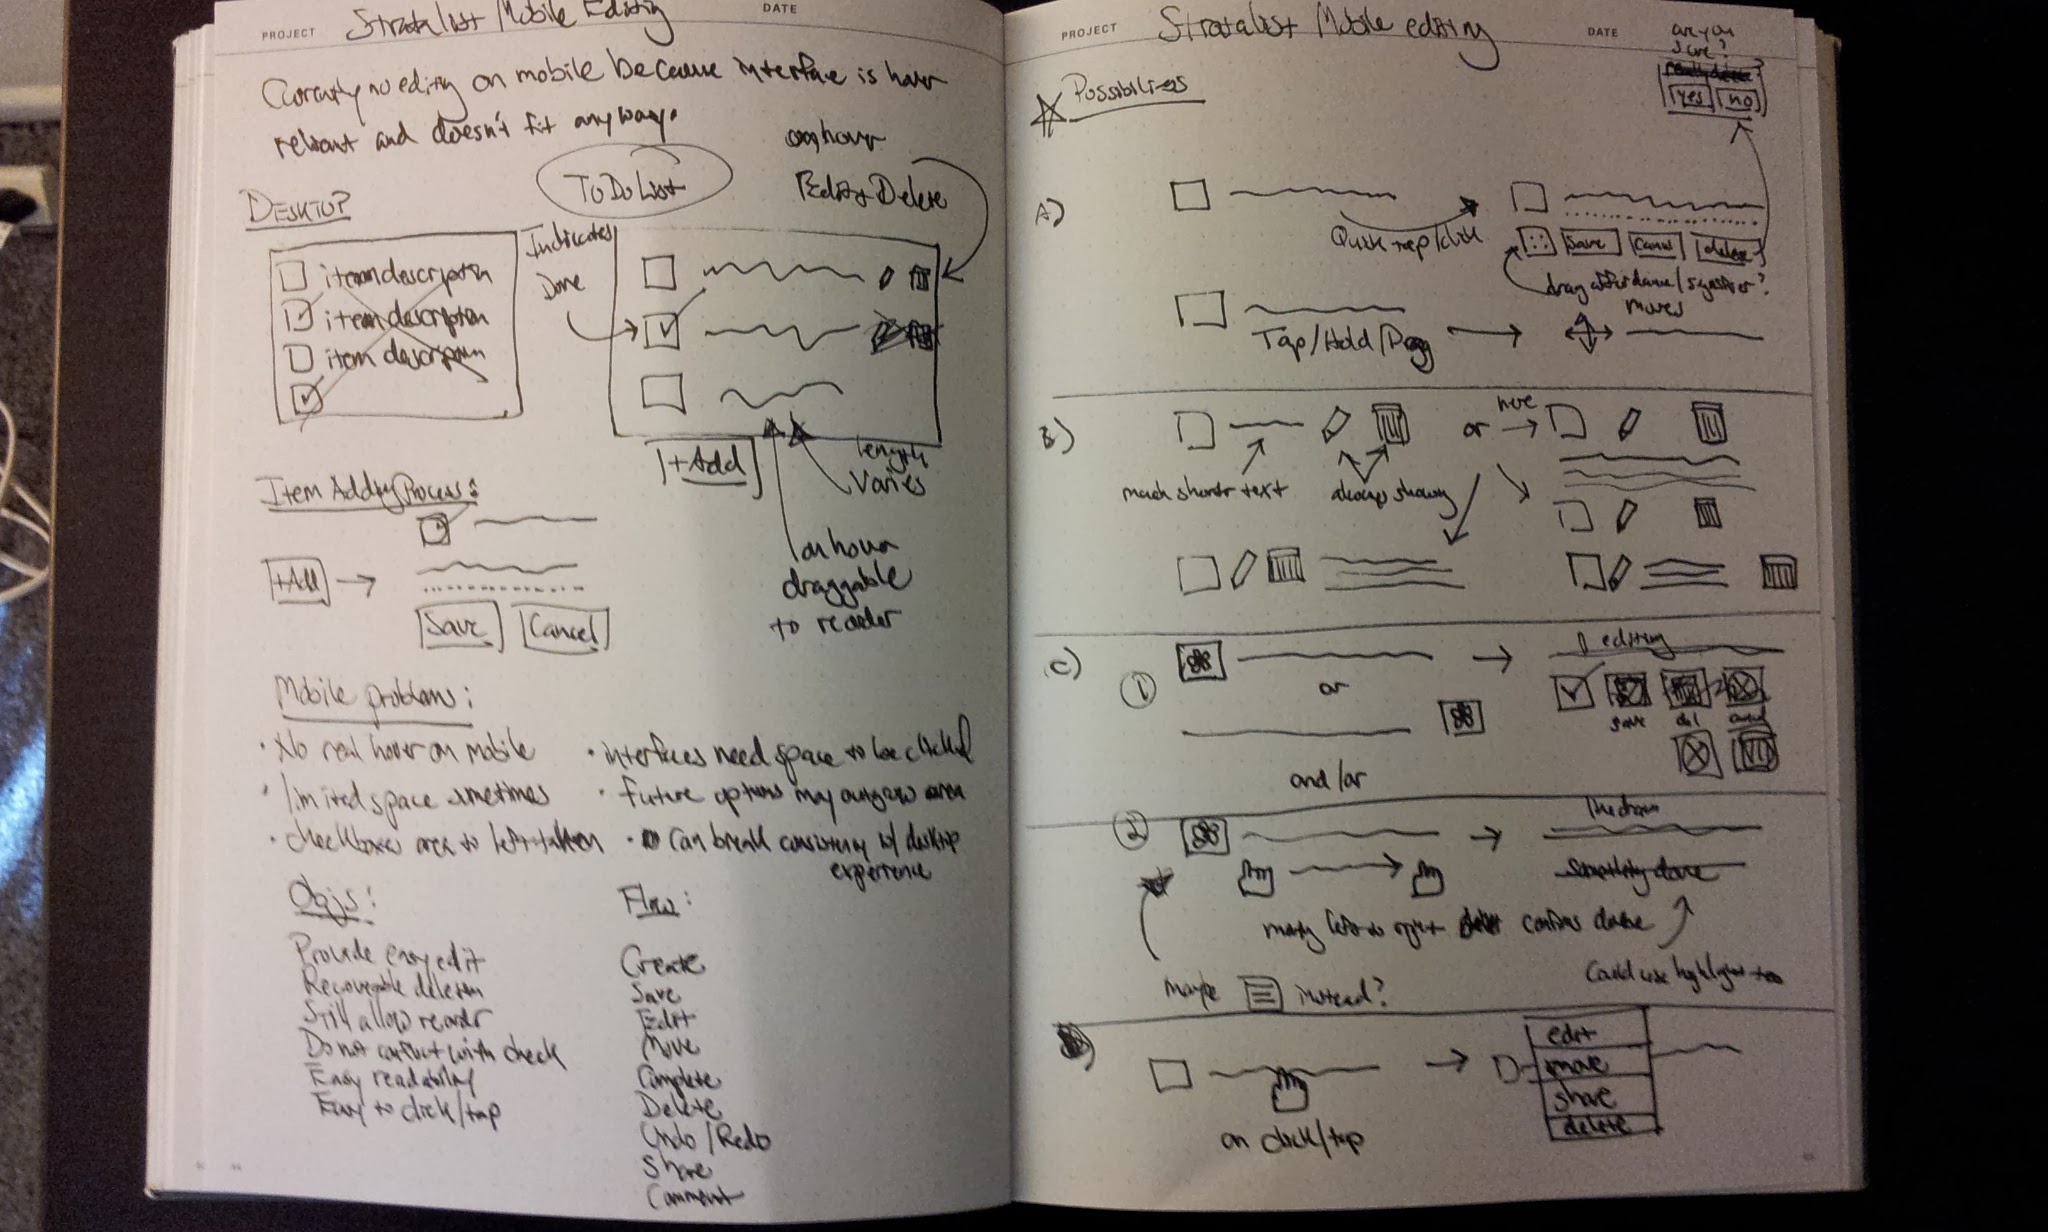 PROJECT Stratalist Mobile Editing
DATE
Currently no editing on mobile because interface is hover
reliant and doesn't fit anyway.
ToDo List
on hover
Edit + Delete
DESKTOP
item description
item description
item description
Indicates
Done
+Add
length
varies
on hover
draggable
to reorder
Item Adding Process:
+Add
Save
Cancel
Mobile problems:
• No real hover on mobile
• limited space sometimes
• checkboxes area to left taken
• interfaces need space to be clicked
• Future options may outgrow area
• Can break consistency w/ desktop
experience
Objs:
Provide easy edit
Recoverable deletion
Still allow reorder
Do not conflict with check
Easy readability
Easy to click/tap
Flow:
Create
Save
Edit
Move
Complete
Delete
Undo/Redo
Share
Comment
PROJECT Stratalist Mobile editing
DATE
are you
sure?
really delete?
yes no
Possibilities
A)
Quick tap/click
Save Cancel delete
drag affordance/signifier?
moves
Tap/Hold/Drag
B)
or
here
much shorter text
always showing
C)
1
or
editing
save del cancel
and/or
2
line drawn
Something done
moving left to right confirms done
Could use highlight too
maybe instead?
on click/tap
edit
move
share
delete